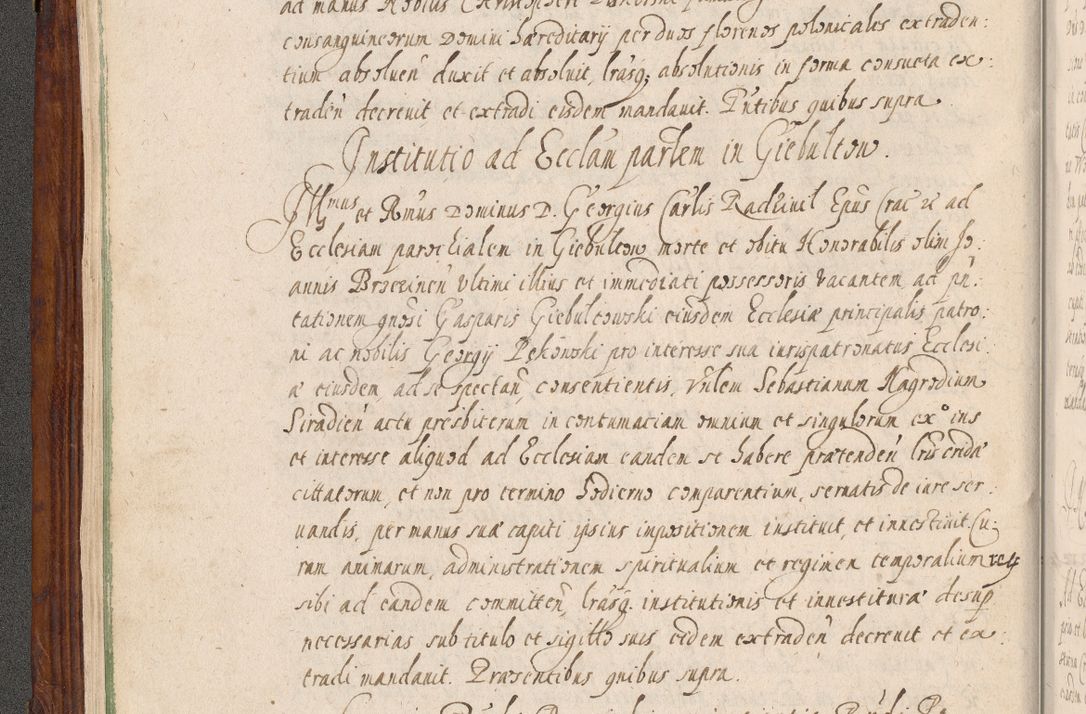 ad manus Nobilis Christophori
consanguineorum Domini hæreditarij per duos florenos polonicales extraden:
tium absoluen̄ duxit et absoluit, lrasq; absolutionis in forma consueta ex:
traden̄ decreuit et extradi eisdem mandauit. Pn̄tibus quibus supra.
Institutio ad Ecclam partem in Giebultow.
Illmus et Rmus Dominus D. Georgius Carlis Radziuil Epus Crac &c ad
Ecclesiam parochialem in Giebultow morte et obitu Honorabilis olim Jo:
annis Broczinen̄ vltimi illius et immediati possessoris vacantem ad pn̄:
tationem gnosi Gasparis Giebultowski eiusdem Ecclesiæ principalis patro:
ni ac nobilis Georgij Pękowski pro interesse sua iurispatronatus Ecclesi:
æ eiusdem, ad se spectan̄, consentientis, vn̄lem Sebastianum Nagrodium
Siradien̄ actu presbiterum in contumatiam omnium et singulorum ex° ius
et interesse aliquod ad Ecclesiam eandem se habere prætenden̄ lris cridæ
cittatorum, et non pro termino hodierno comparentium, seruatis de iure ser:
uandis, per manus suæ capiti ipsius impositionem instituit, et inuestiuit. Cu:
ram animarum, administrationem spiritualium et regimen temporalium relq
sibi ad eandem committen̄, lrasq. institutionis et inuestituræ desup
necessarias sub titulo et sigillo suis eidem extraden̄ decreuit et ex:
tradi mandauit. Præsentibus quibus supra.